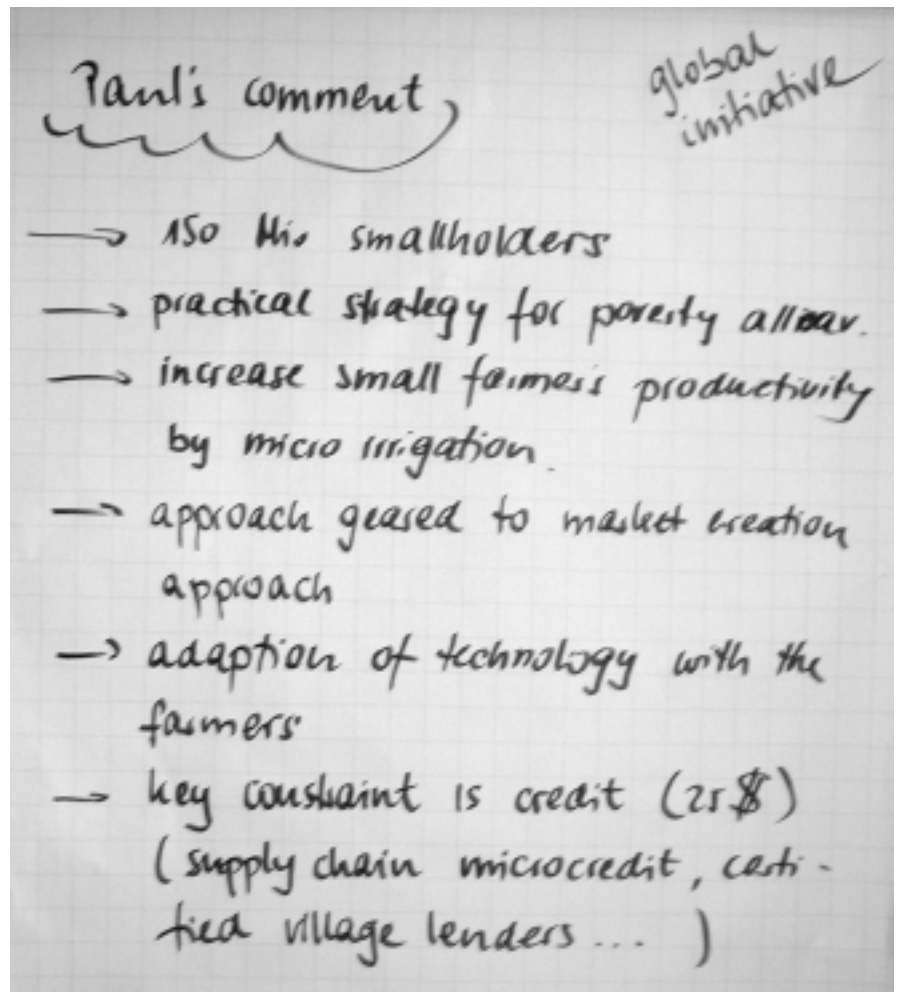 Paul's comment
global
initiative
→ 150 Mio smallholders
→ practical strategy for poverty
→ increase small farmers productivity
by micro irrigation.
→ approach geared to market creation
approach
→ adaption of technology with the
farmers
→ key constraint is credit (25 $)
(supply chain microcredit, certi-
fied village lenders ... )